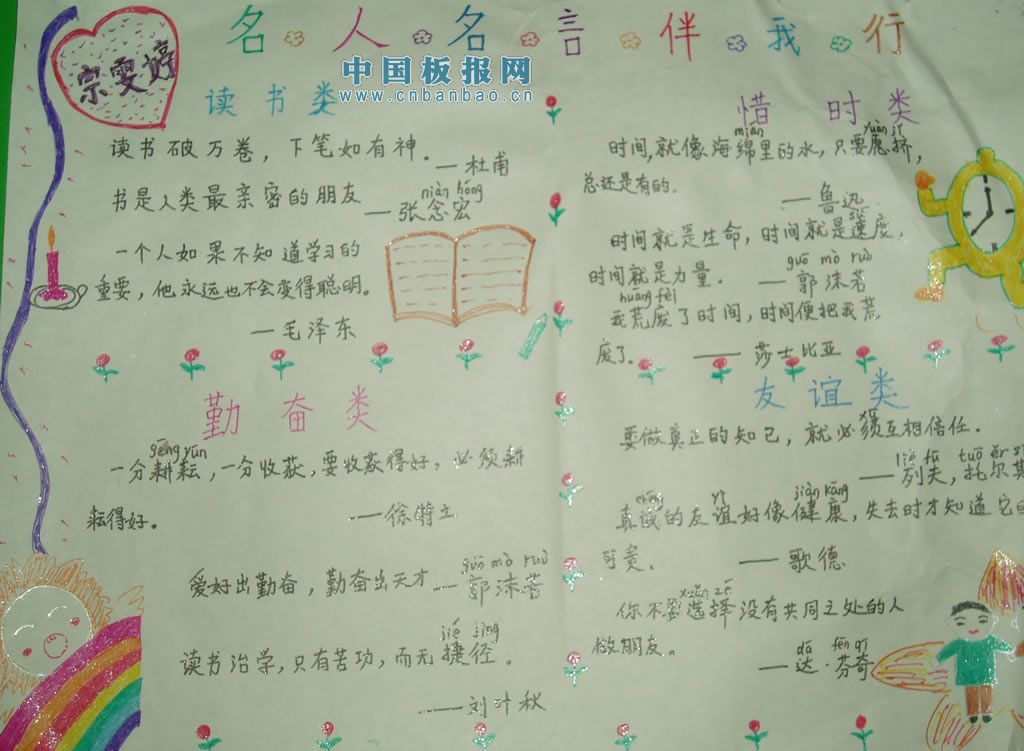 名人名言伴我行
宗雯婷
中国板报网
www.cnbanbao.cn
读书类
读书破万卷，下笔如有神。
—杜甫
niàn hóng
书是人类最亲密的朋友
—张念宏
一个人如果不知道学习的
重要，他永远也不会变得聪明。
—毛泽东
惜时类
mián yuàn jǐ
时间,就像海绵里的水,只要愿挤,
总还是有的。
—鲁迅
sù
时间就是生命，时间就是速度，
guō mò ruò
时间就是力量．—郭沫若
huāng fèi
我荒废了时间，时间便把我荒
废了。——莎士比亚
勤奋类
gēng yún
一分耕耘，一分收获，要收获得好，必须耕
耘得好。——徐特立
guō mò ruò
爱好出勤奋，勤奋出天才—郭沫若
jié jìng
读书治学，只有苦功，而无捷径。
——刘叶秋
友谊类
要做真正的知己，就必须互相信任．
liè fū tuō ěr s
—列夫，托尔斯
chéng yì jiàn kāng
真诚的友谊好像健康，失去时才知道它的
可贵．—歌德
xuǎn zé
你不要选择没有共同之处的人
做朋友。
dá fēn qí
—达·芬奇